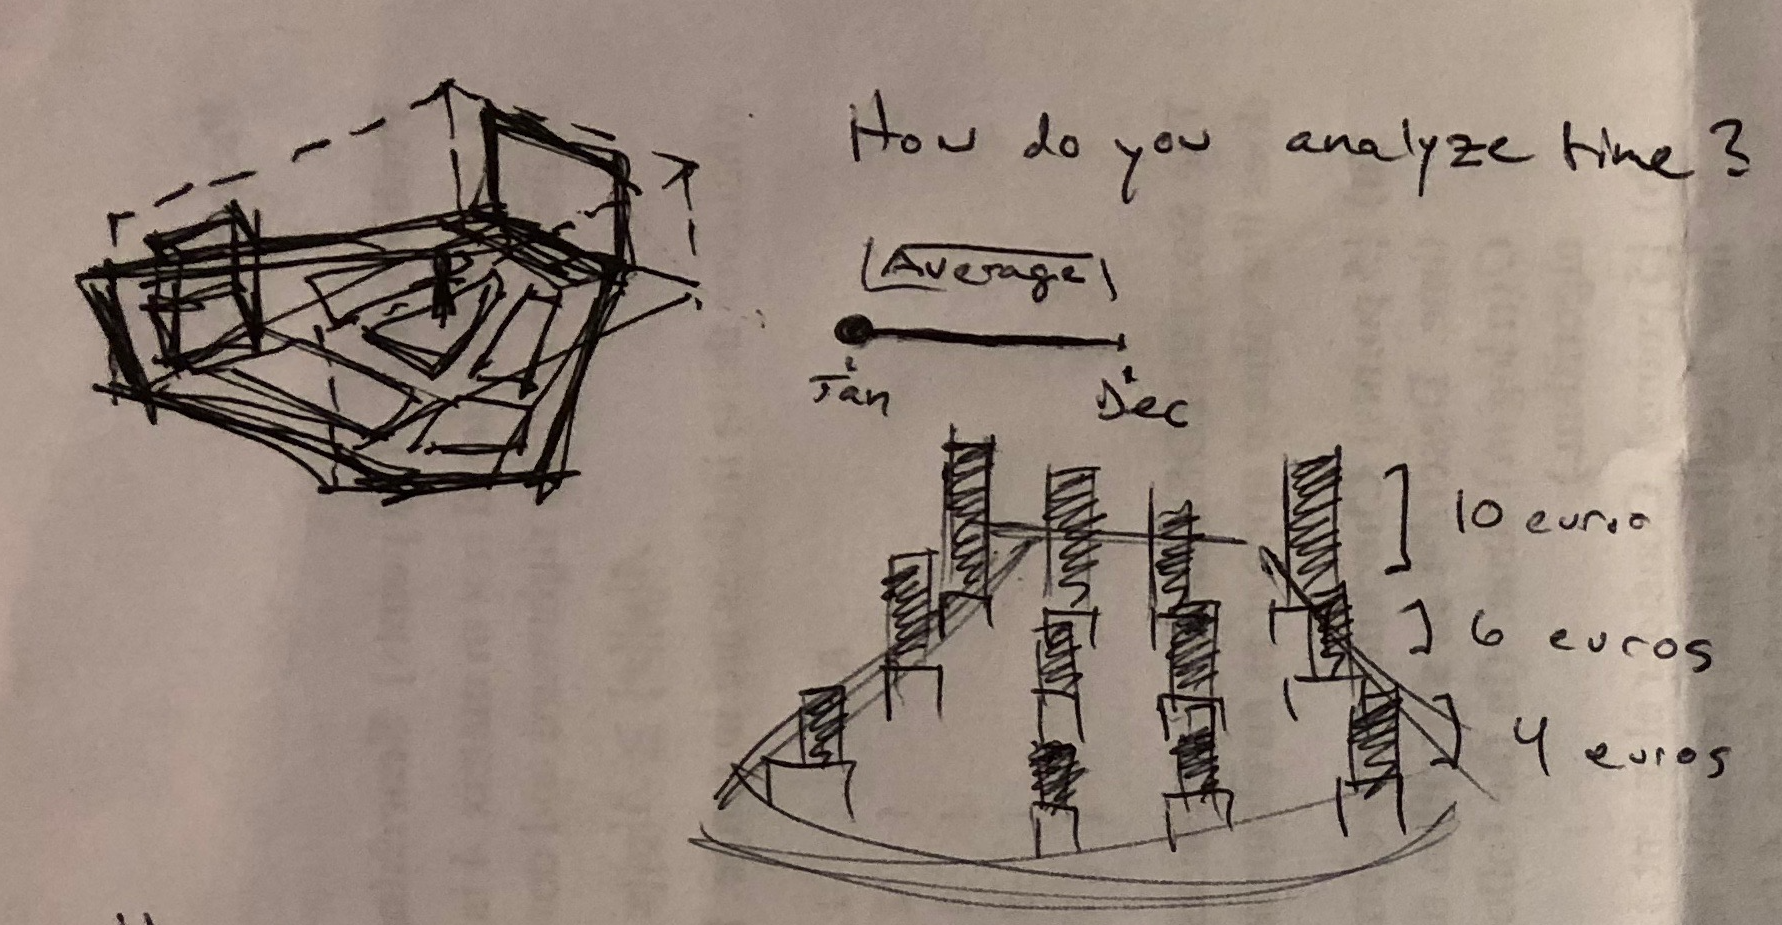 How do you analyze time?
Average
Jan
Dec
10 euro
6 euros
4 euros